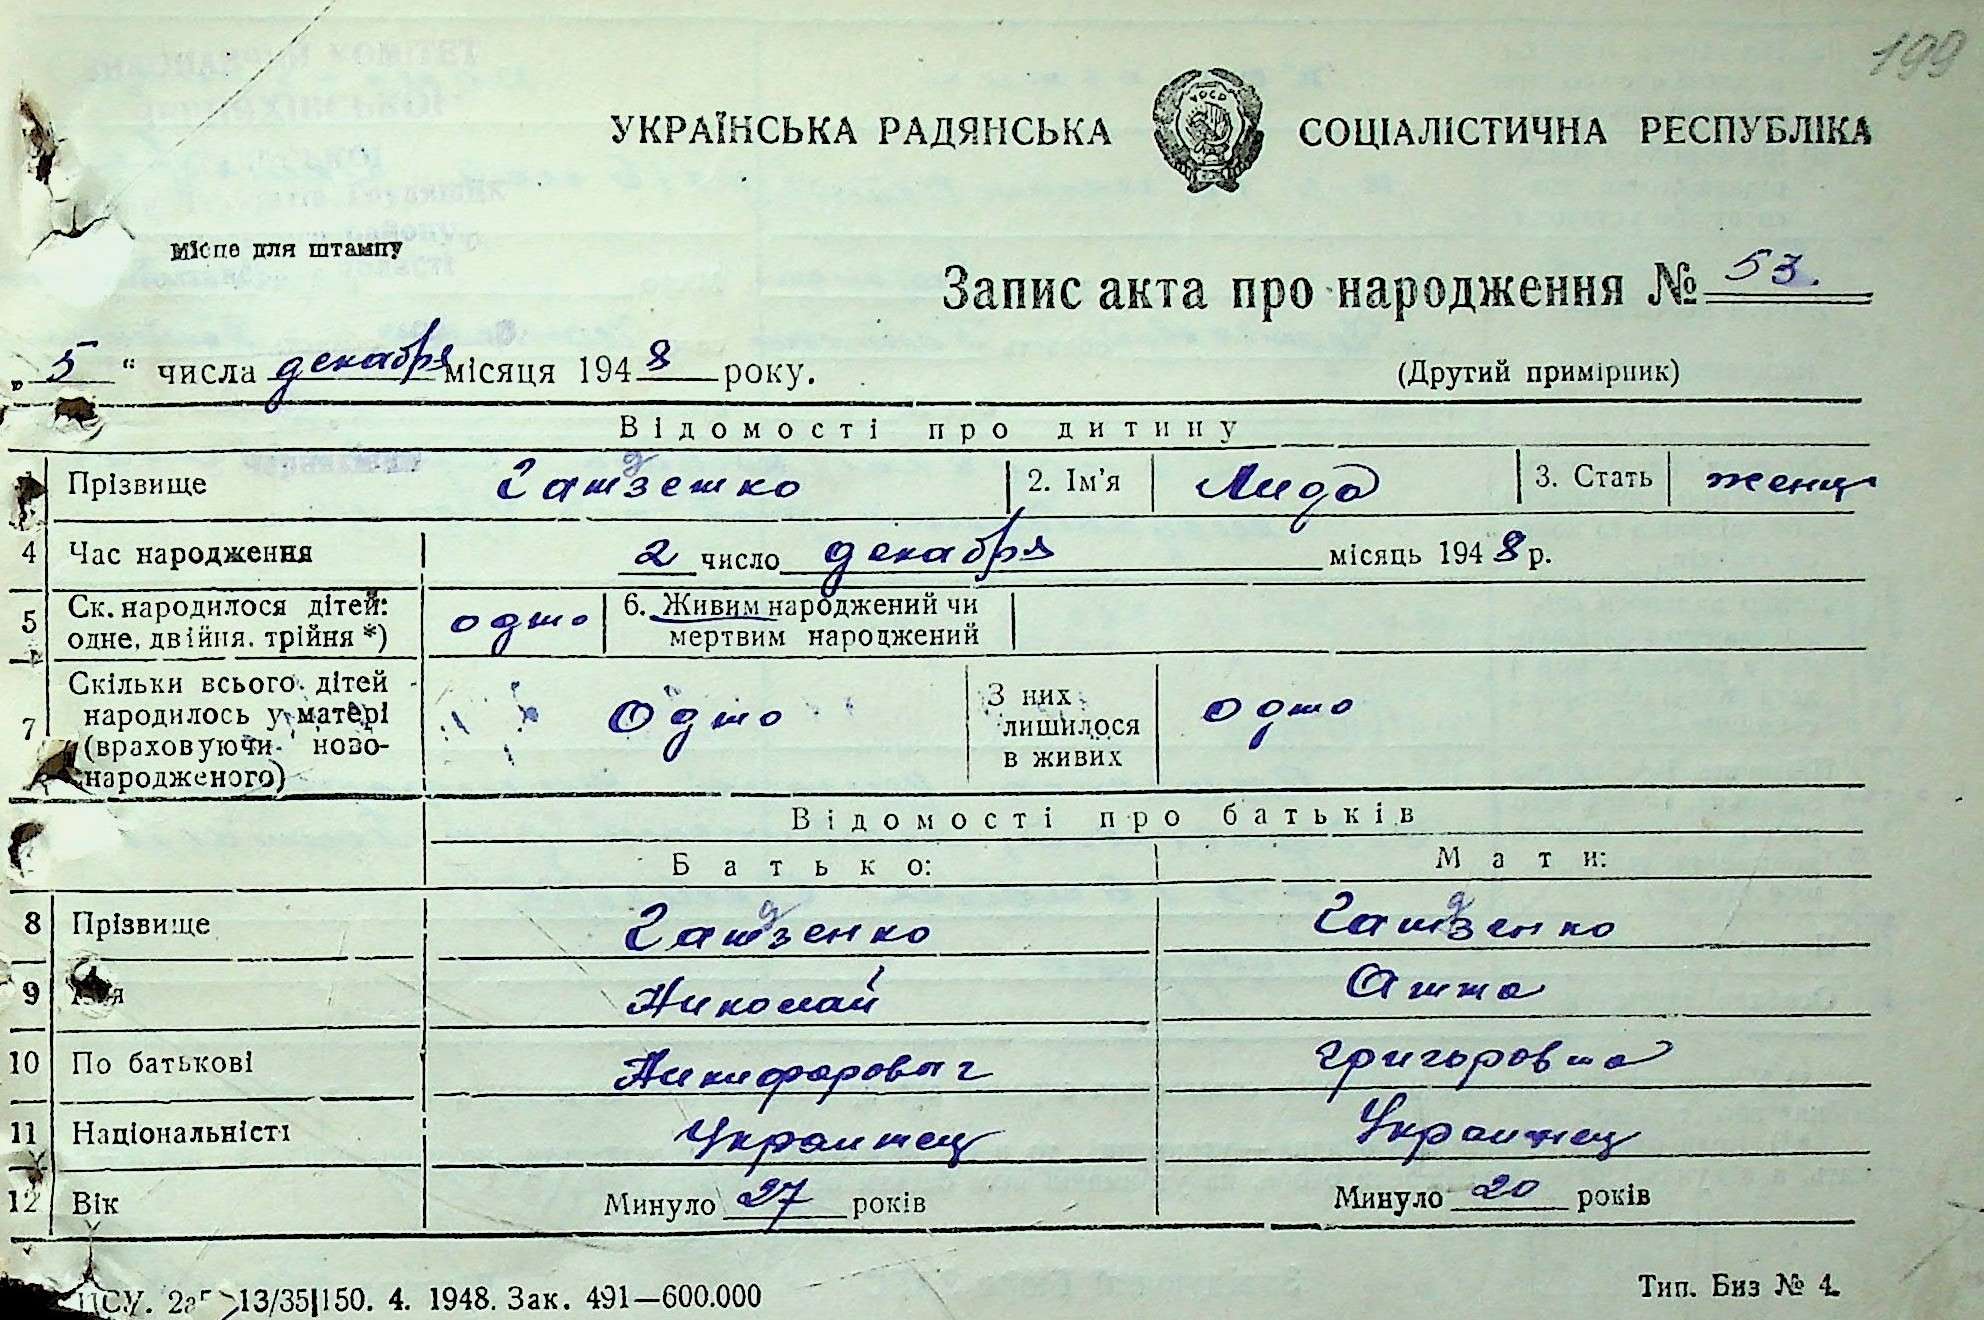 199
УКРАЇНСЬКА РАДЯНСЬКА СОЦІАЛІСТИЧНА РЕСПУБЛІКА
УРСР
Місце для штампу
Запис акта про народження № 53.
„ 5 “ числа декабря місяця 1948 року. (Другий примірник)
Відомості про дитину
Прізвище 2. Ім'я Лида 3. Стать женц
4 Час народження 2 число декабря місяць 1948 р.
5 Ск. народилося дітей: одно 6. Живим народжений чи
одне, двійня. трійня *) мертвим народжений
7 Скільки всього дітей Одно З них одно
народилось у матері лишилося
(враховуючи ново- в живих
народженого)
Відомості про батьків
Батько: Мати:
8 Прізвище
9 Николай Анна
10 По батькові Никифарович Григоровна
11 Національністі Украинец Украинец
12 Вік Минуло 27 років Минуло 20 років
ЦСУ. 13/35|150. 4. 1948. Зак. 491—600.000 Тип. Биз № 4.